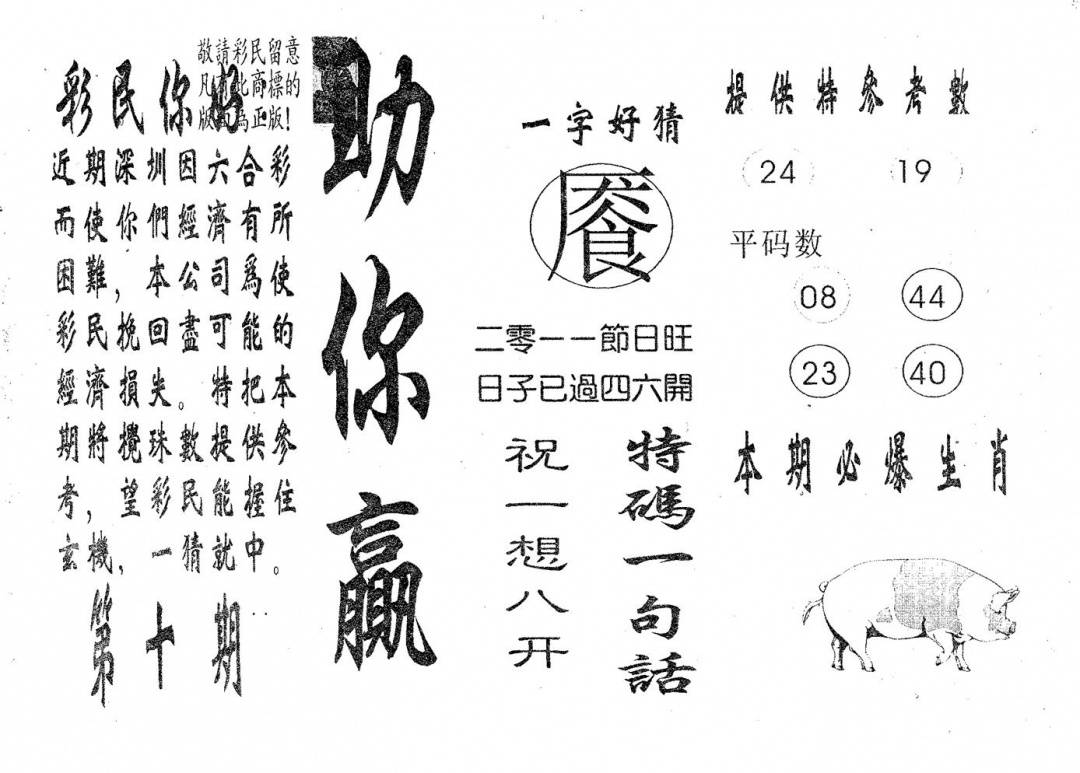 敬請彩民留意
凡有此商標的
版面為正版!
彩民你好
近期深圳因六合彩
而使你們經濟有所
困難，本公司爲使
彩民挽回盡可能的
經濟損失。特把本
期將攪珠數提供參
考，望彩民能握住
玄機，一猜就中。
第十期
助你贏
一字好猜
二零一一節日旺
日子已過四六開
特碼一句話
祝一想八开
提供特參考數
24 19
平码数
08 44
23 40
本期必爆生肖